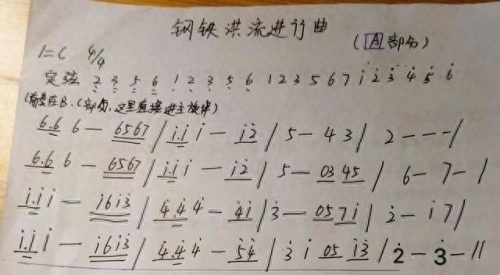 钢铁洪流进行曲
(A部分)
1=C 4/4
定弦 2 3 5 6 1 2 3 5 6 1 2 3 5 6 7 1̇ 2̇ 3̇ 4̇ 5̇ 6̇
这里直接进主旋律)
6.6 6 — 6567 / i̇.i̇ i̇ — i̇2̇ / 5 — 4 3 / 2 - - - /
6.6 6 — 6567 / i̇.i̇ i̇ — i̇2̇ / 5 — 03 45 / 6 - 7 - /
i̇.i̇ i̇ — i̇6i̇3̇ / 4̇.4̇ 4̇ — 4̇i̇ / 3̇ — 05 7i̇ / 2̇ — i̇ 7 /
i̇.i̇ i̇ — i̇6i̇3̇ / 4̇.4̇ 4̇ — 5̇4̇ / 3̇ i̇ 05 i̇3̇ / 2̇ - 3̇ - //